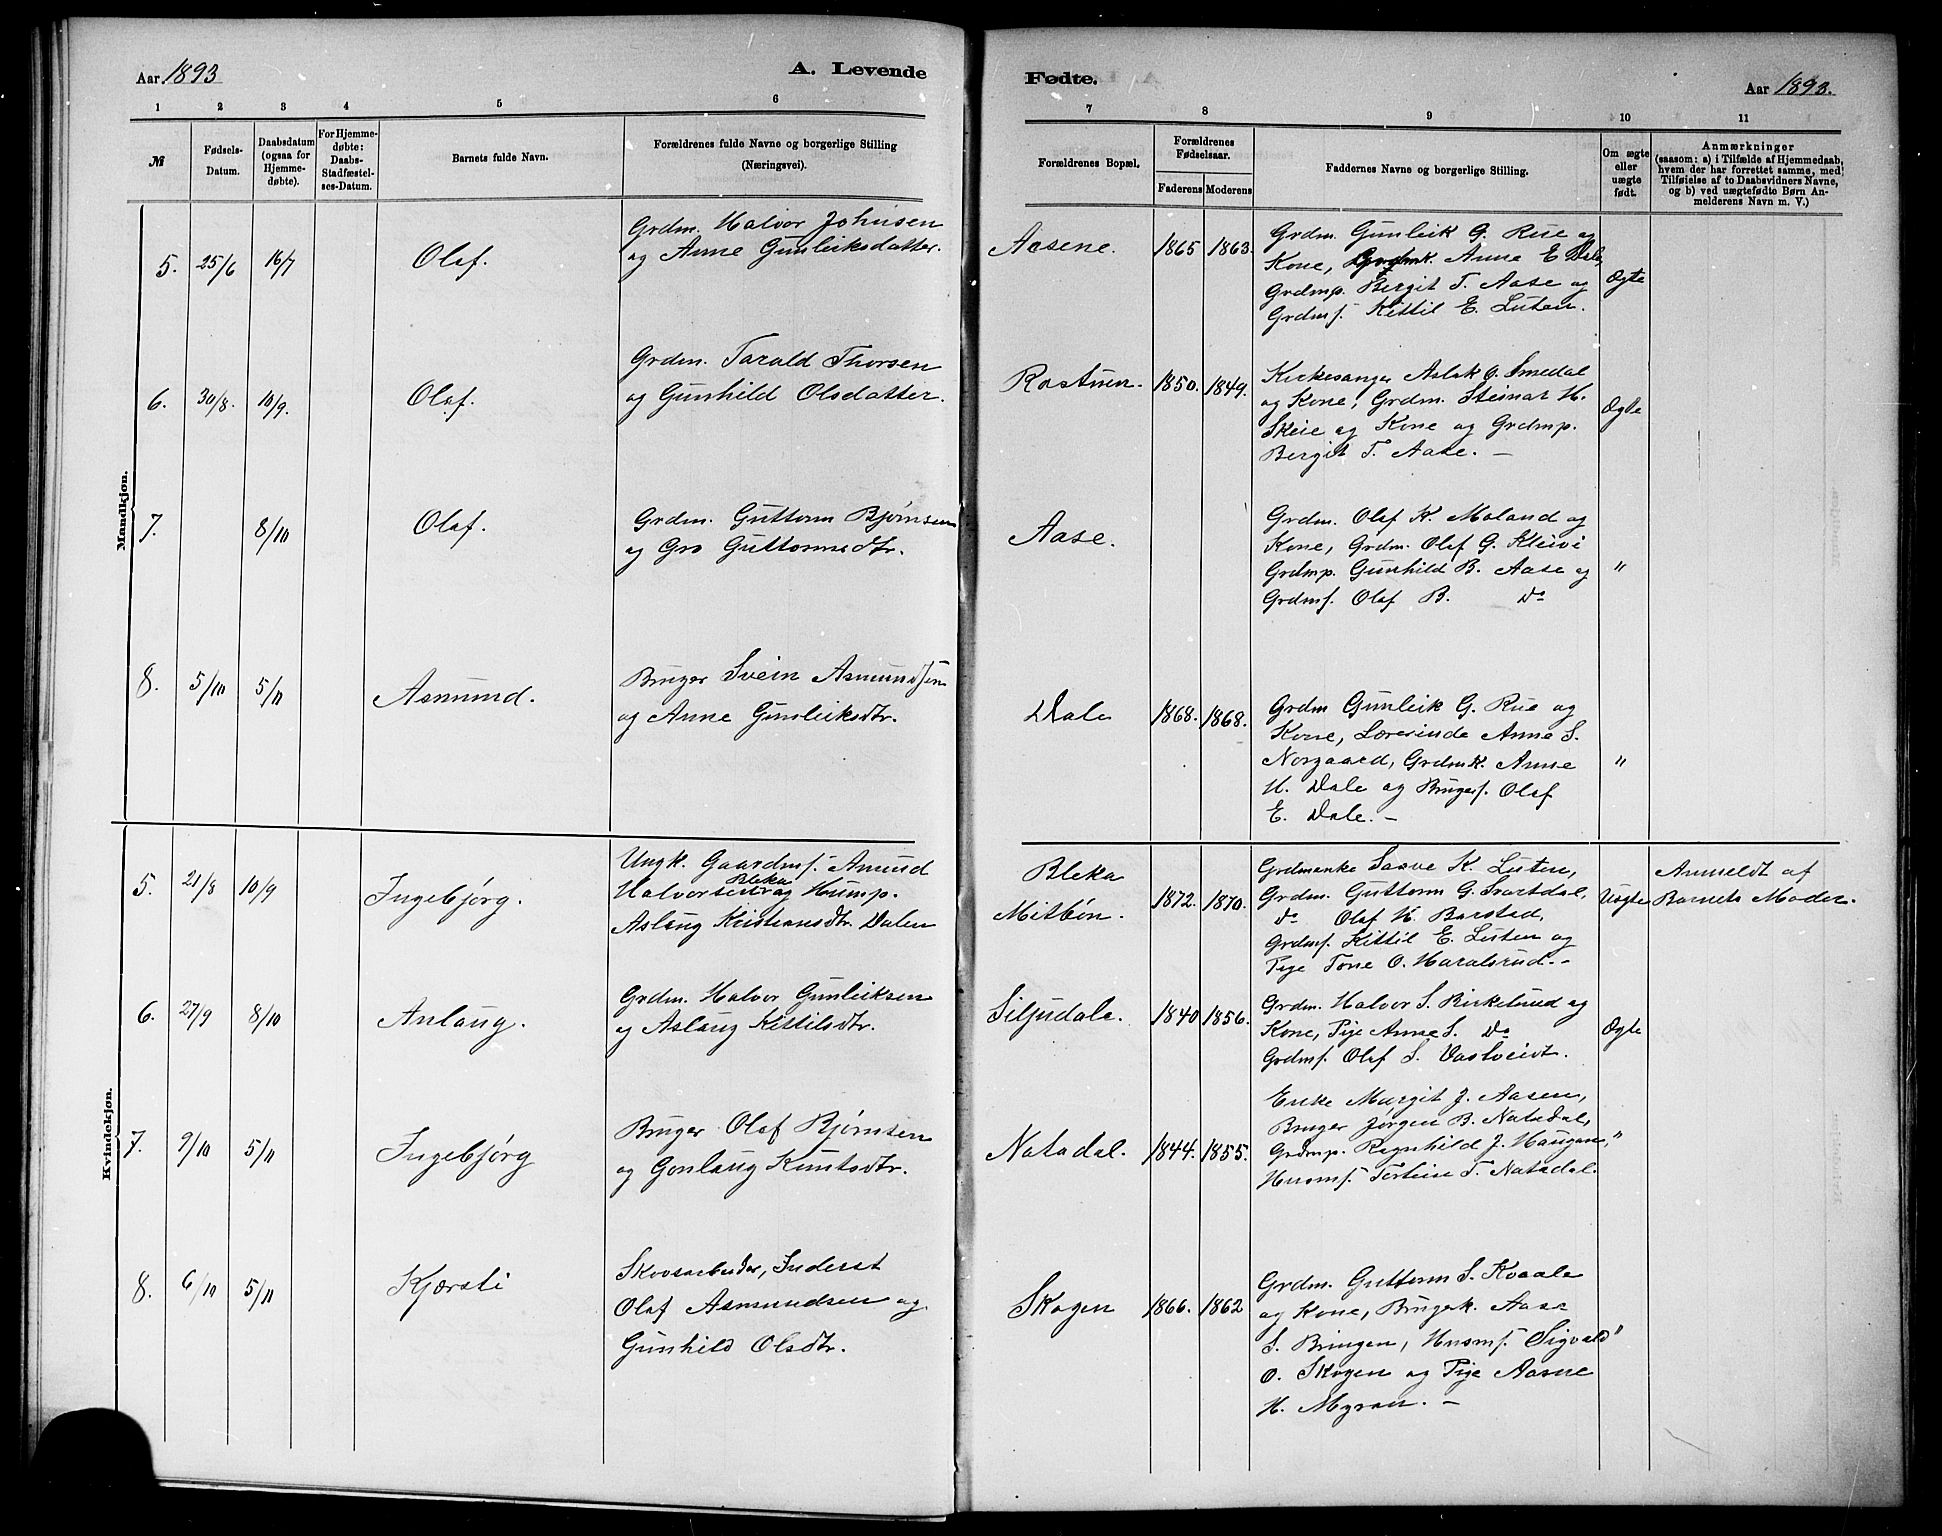 Aar 1893
A. Levende
1 2 3 4 5 6
№
Fødsels-
Datum.
Daabsdatum
(ogsaa for
Hjemme-
døbte).
For Hjemme-
døbte:
Daabs-
Stadfæstel-
ses-Datum.
Barnets fulde Navn.
Forældrenes fulde Navne og borgerlige Stilling
(Næringsvei).
Mandkjøn.
5. 25/6 16/7 Olaf.
Grdm. Halvor Johnsen
og Anne Gunleiksdatter.
6. 30/8. 10/9. Olaf.
Grdm. Tarald Thorsen
og Gunhild Olsdatter.
7. 8/10 Olaf.
Grdm. Guttorm Bjørnsen
og Gro Guttormsdtr.
8. 5/10 5/11 Asmund.
Bruger Svein Asmundsen
og Anne Gunleiksdtr.
Kvindekjøn.
5. 21/8 10/9 Ingebjørg.
Ungk. Gaardmf. Amund
Bleka
Halvorsen og Husmp.
Aslaug Kristiansdtr. Dalen
6. 27/9 8/10 Anlaug.
Grdm. Halvor Gunleiksen
og Aslaug Kittilsdtr.
7. 9/10 5/11 Ingebjørg
Bruger Olaf Bjørnsen
og Gonlaug Knutsdtr.
8. 6/10 5/11 Kjærsti
Skovarbeider, Inderst
Olaf Asmundsen og
Gunhild Olsdtr.
Fødte.
Aar 1893.
7 8 9 10 11
Forældrenes Bopæl.
Forældrenes
Fødselsaar.
Faderens Moderens
Faddernes Navne og borgerlige Stilling.
Om ægte
eller
uægte
født.
Anmærkninger
(saasom: a) i Tilfælde af Hjemmedaab,
hvem der har forrettet samme, med
Tilføielse af to Daabsvidners Navne,
og b) ved uægtefødte Børn An-
melderens Navn m. V.)
Aasene. 1865 1863.
Grdm. Gunleik G. Rue og
Kone, Grdmk. Anne E Dale,
Grdmp. Bergit T. Aase og
Grdmf. Kittil E. Lüten.
Ægte
Rostuen. 1850. 1849.
Kirkesanger Aslak O. Smedal
og Kone, Grdm. Steinar H.
Skeie og Kone og Grdmp.
Bergit T. Aase. —
Ægte
Aase.
Grdm. Olaf K. Moland og
Kone, Grdm. Olaf G. Kleivi
Grdmp. Gunhild B. Aase og
Grdmf. Olaf B. Do
"
Dale 1868. 1868.
Grdm Gunleik G. Rue og
Kone, Lærerinde Anne S.
Norgaard, Grdmk. Anne
H. Dale og Brugerf. Olaf
E. Dale. —
"
Bleka
Mitbøn. 1872. 1870.
Grdmenke Saave K. Lüten,
Grdm. Guttorm G. Svartdal,
Do Olaf H. Barstad,
Grdmf. Kittil E. Lüten og
Pige Tone O. Haralsrud. -
Uægte
Anmeldt af
Barnets Moder.
Siljudale. 1840 1856.
Grdm. Halvor S. Birkelund og
Kone, Pige Anne S. Do
Grdmf. Olaf S. Vastveidt.
Ægte
Natadal. 1844. 1855.
Enke Margit J. Aasen,
Bruger Jørgen B. Natadal,
Grdmp. Ragnhild J. Haugan,
Husmf. Tortein T. Natadal.
"
Skogen 1866. 1862
Grdm. Guttorm S. Kvaale
og Kone, Brugerk. Aase
S. Bringen, Husmf. Sigvald
O. Skogen og Pige Aasne
H. Myran. —
"